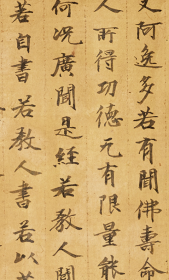 又阿逸多若有聞佛壽命
人所得功德无有限量能
何況廣聞是經若教人聞
若自書若教人書若以